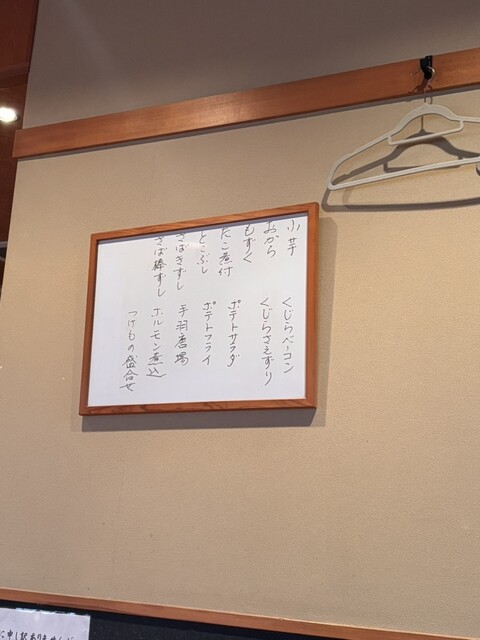 小芋
おから
もずく
たこ煮付
とこぶし
さばきずし
さば棒ずし
くじらベーコン
くじらさえずり
ポテトサラダ
ポテトフライ
手羽唐揚
ホルモン煮込
つけもの盛合せ
に申し訳ありませんが